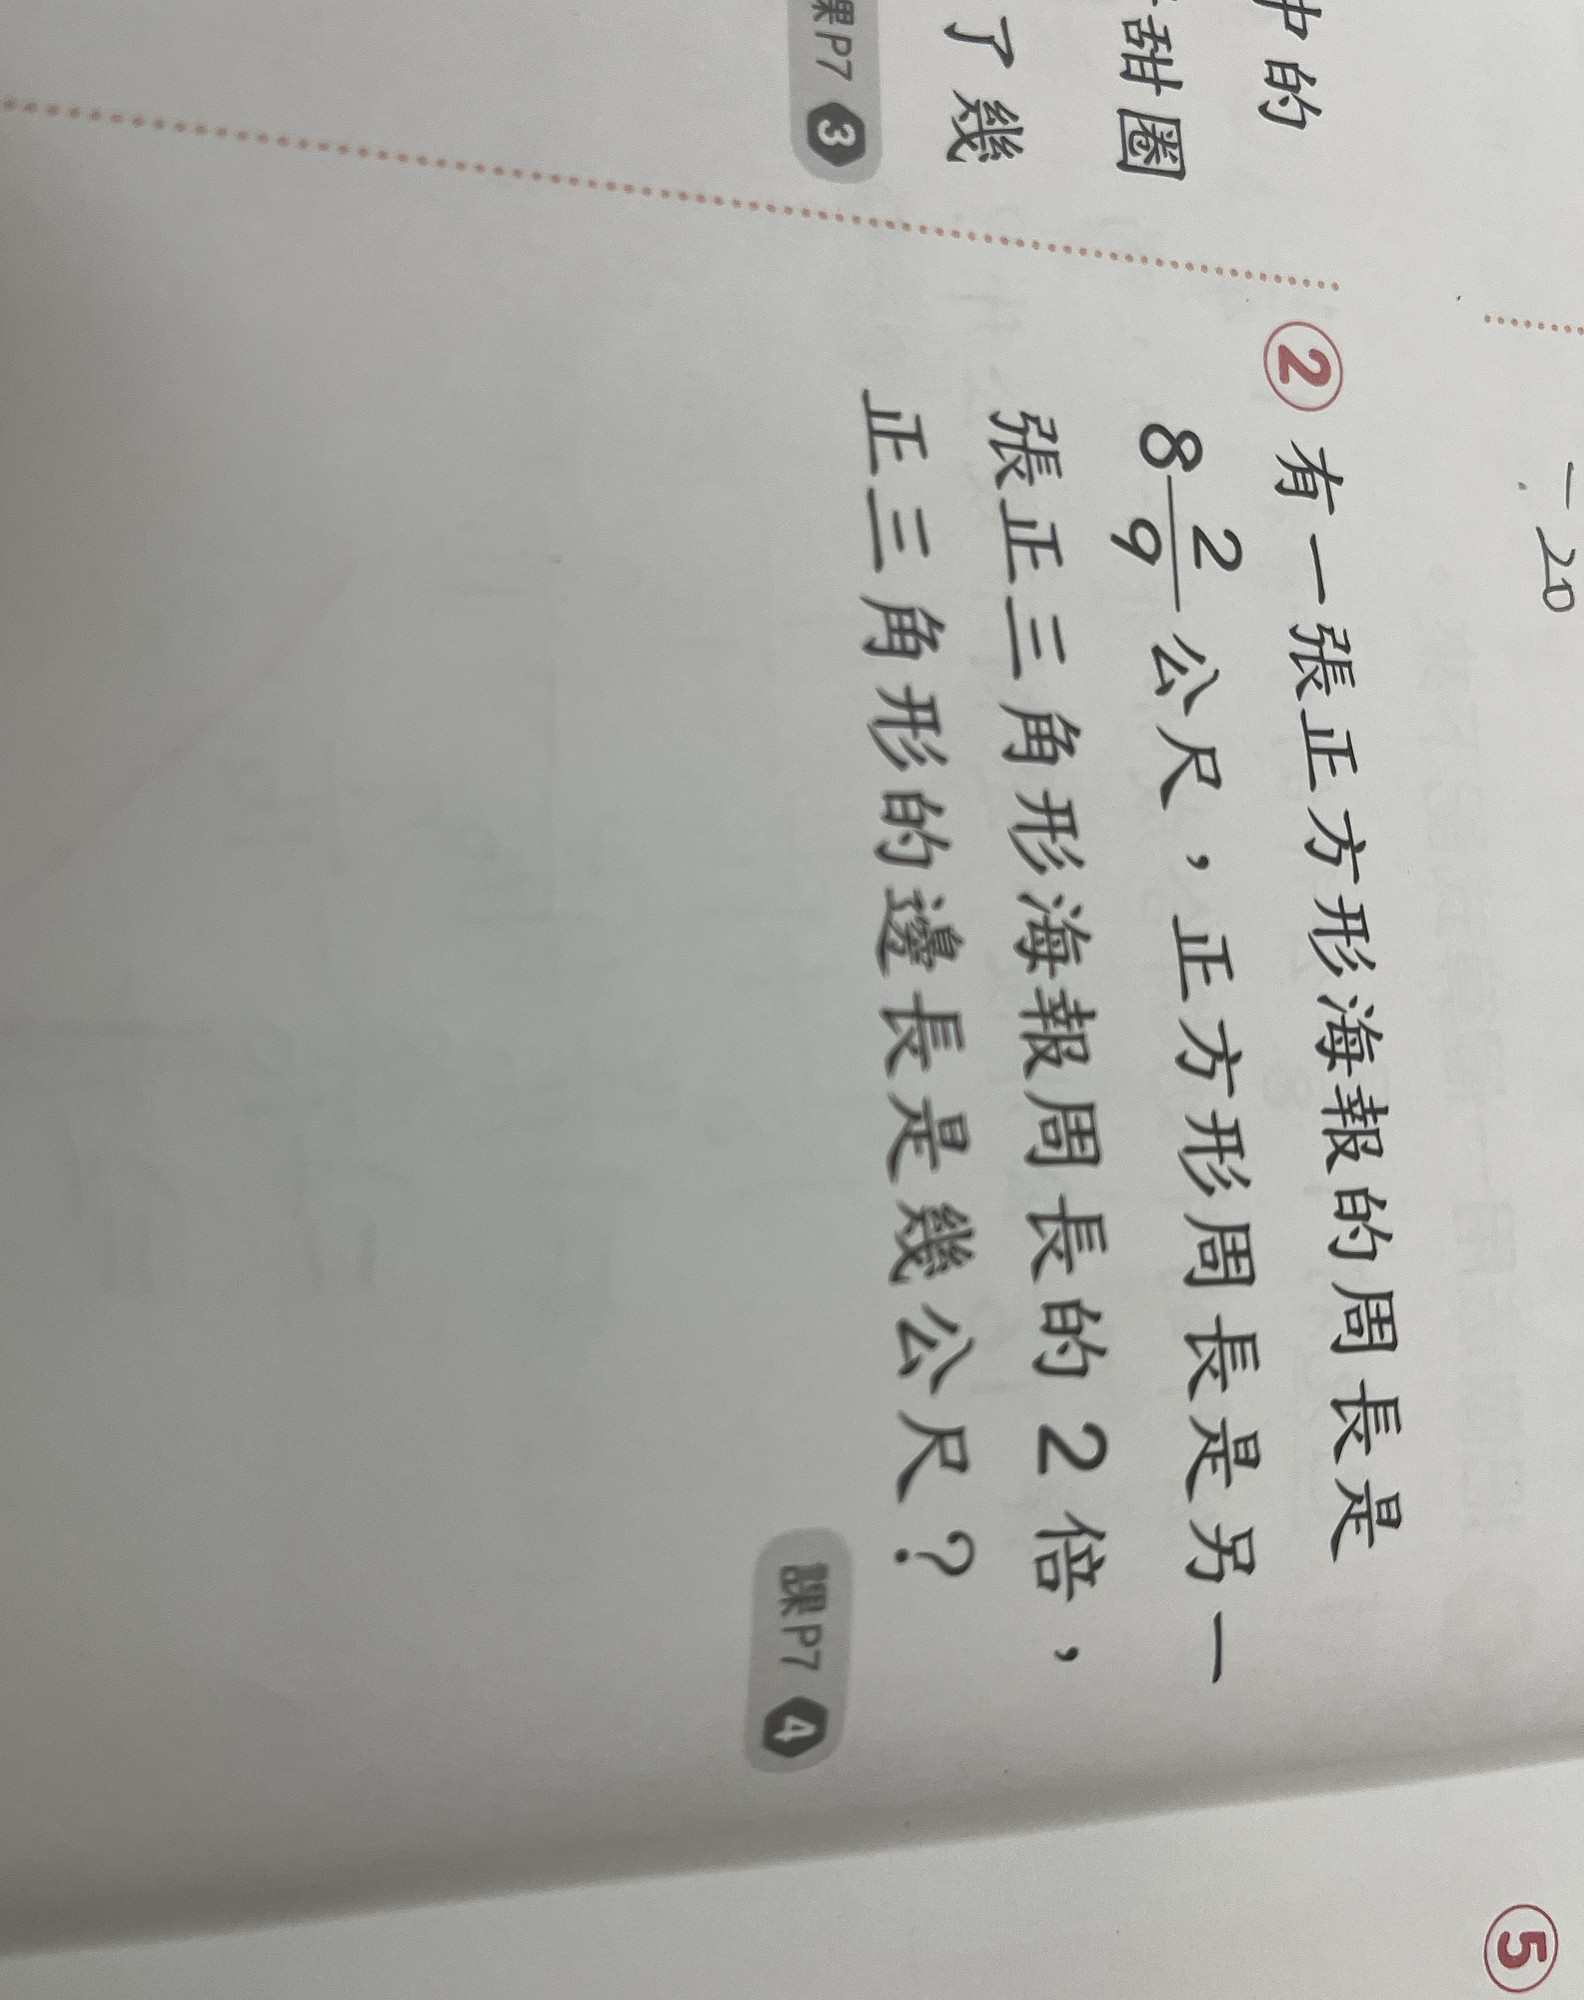 中的
甜圈
了幾
課P7 3
-20
② 有一張正方形海報的周長是
8 2/9 公尺，正方形周長是另一
張正三角形海報周長的2倍，
正三角形的邊長是幾公尺？
課P7 4
⑤